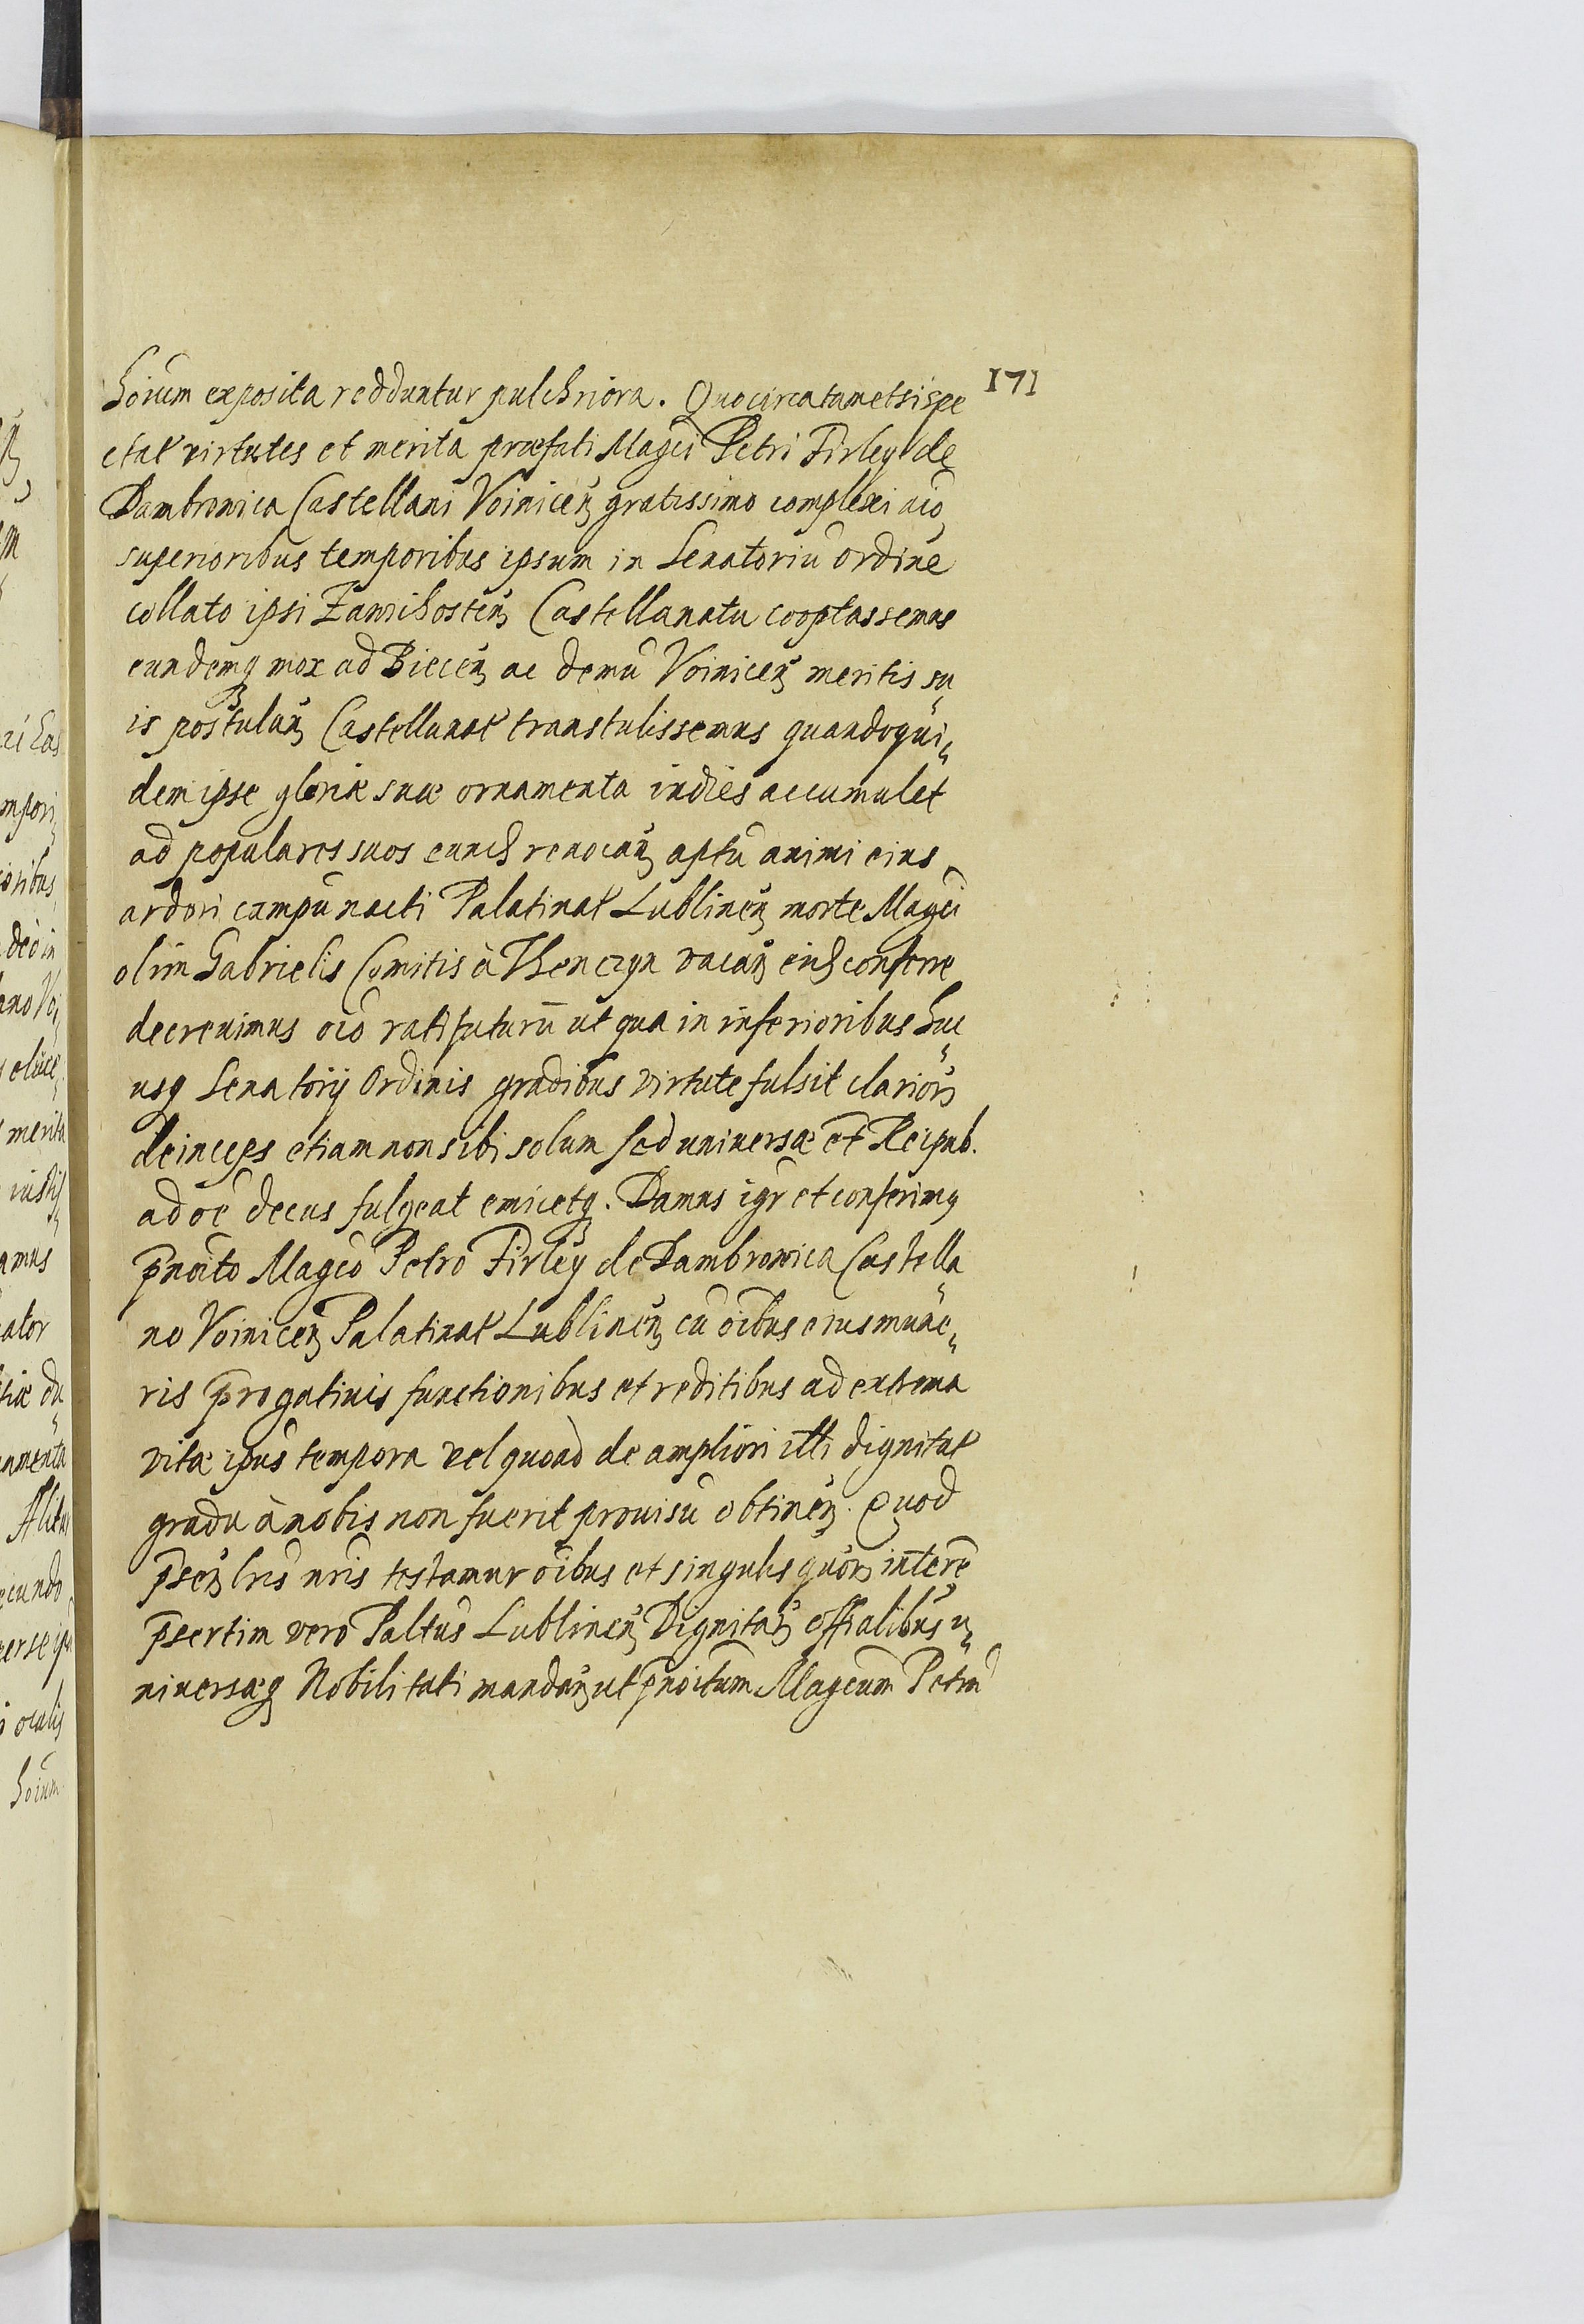 171
hoium exposita redduntur pulchriora. Quocirca tametsi spe
ctat virtutes et merita præfati Magci Petri Firley de
Dambrowica Castellani Voinicen gratissimo complexi aio
superioribus temporibus ipsum in Senatoriu ordine
collato ipsi Zawihosten Castellanatu cooptassemus
eundemq mox ad Biecen ac demu Voinicen meritis su
is postulan Castellanat transtulissemus quandoqui
dem ipse gloriæ suæ ornamenta indies accumulet
ad populares suos revocan aptu animi eius
ardori campu nacti Palatinat Lublinen morte Magci
olim Gabrielis Comitis à Thenczyn vacan conferre
decrevimus oio rati futuru ut qua in inferioribus huc
usq Senatorij Ordinis gradibus virtute fulsit clarior
deinceps etiam non sibi solum sed universæ et Reipub.
ad oe decus fulgeat emicetq. Damus igr et conferimus
pnoito Magco Petro Firley de Dambrowica Castella
no Voinicen Palatinat Lublinen cu oibus eius mune
ris progativis functionibus et reditibus ad extrema
vitæ ipus tempora vel quoad de ampliori illi dignitat
gradu à nobis non fuerit provisu obtinen. Quod
psen lris nris testamur oibus et singulis quor intere
psertim vero Paltus Lublinen Dignitar offialibus u
niversæq Nobilitati mandan ut pnoitum Magcum Petru